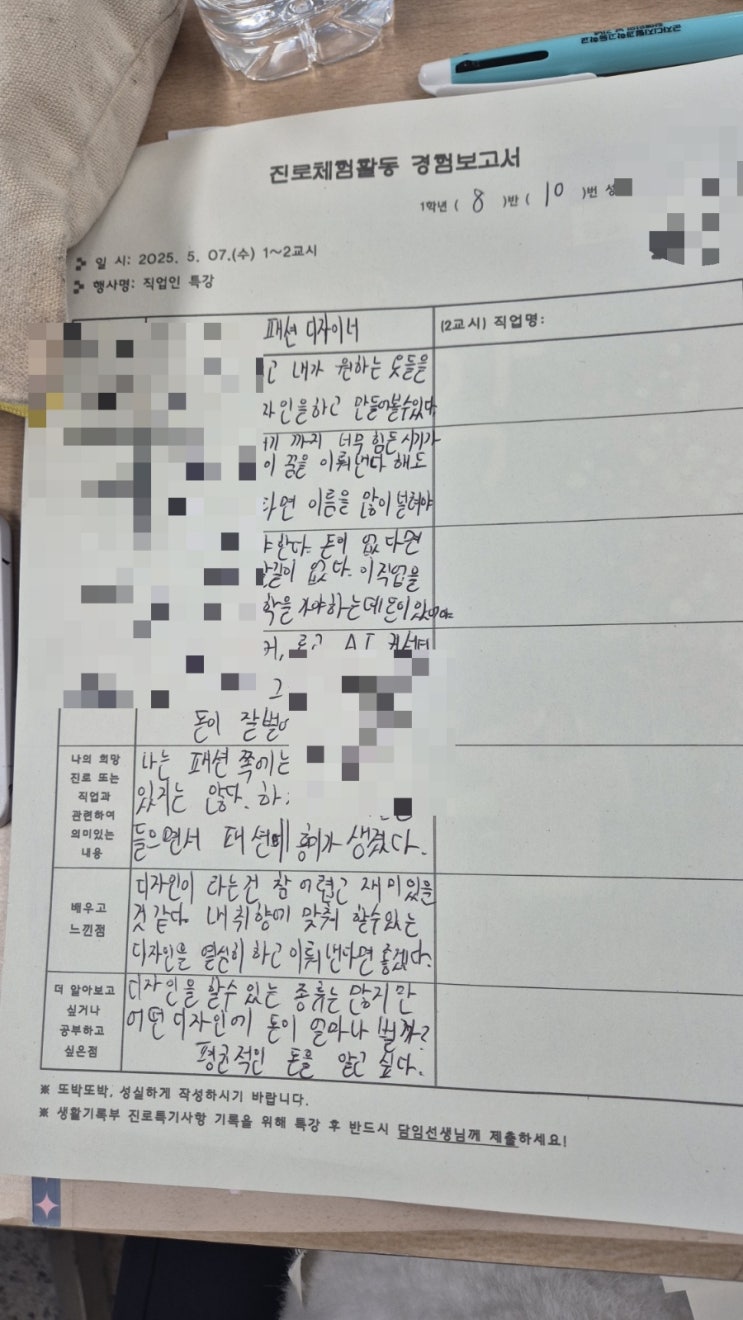 진로체험활동 경험보고서
1학년 ( 8 )반 ( 10 )번 성
일 시: 2025. 5. 07.(수) 1~2교시
행사명: 직업인 특강
패션 디자이너
(2교시) 직업명:
고 내가 원하는 옷들을
자인을하고 만들어볼수있다
까지 너무 힘든시기가
이 꿈을 이뤄낸다 해도
다면 이름을 많이 널려야
야한다. 돈이 없다면
길이 없다. 이직업을
학을 가야하는데돈이있어야
커, 로고
그
돈이 잘벌
나의 희망
진로 또는
직업과
관련하여
의미있는
내용
나는 패션 쪽에는
있지는 않다. 하
들으면서 패션에 흥미가 생겼다.
배우고
느낀점
디자인이 라는건 참 어렵고 재미있을
것 같다. 내취향에 맞춰 할수있는
디자인을 열심히 하고 이뤄낸다면 좋겠다.
더 알아보고
싶거나
공부하고
싶은점
디자인을 할수 있는 종류는 많지만
어떤 디자인에 돈이 얼마나 벌까?
평균적인 돈을 알고 싶다.
※ 또박또박, 성실하게 작성하시기 바랍니다.
※ 생활기록부 진로특기사항 기록을 위해 특강 후 반드시 담임선생님께 제출하세요!